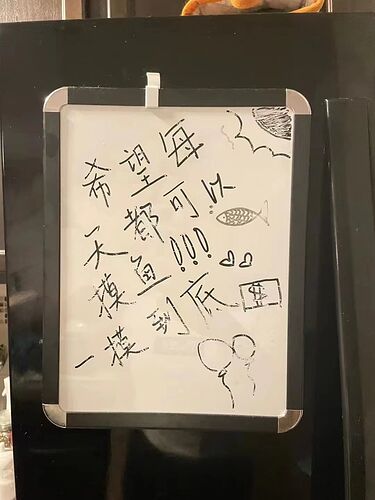 希望每
一天都可以
摸鱼!!!
一摸到底